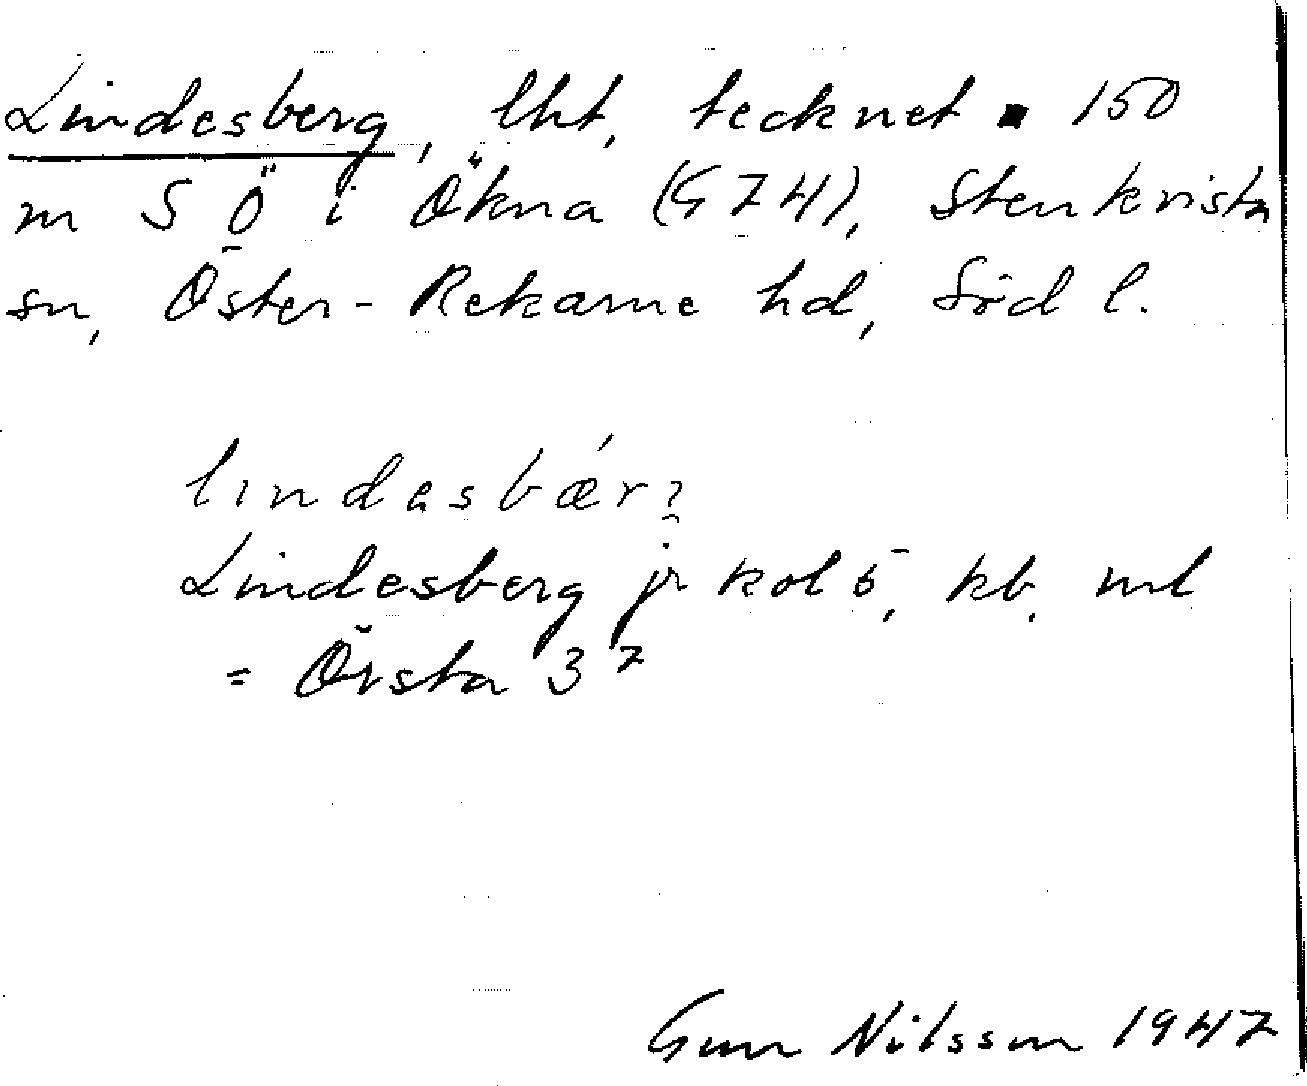 Lindesberg, lht, tecknet ▪ 150
m S Ö i Ökna (G 7 4), Stenkvista
sn, Öster-Rekarne hd, Söd l.
lındasbǽr
Lindesberg jr kol 5, kb, ml
= Örsta 3⁷
Gun Nilsson 1947